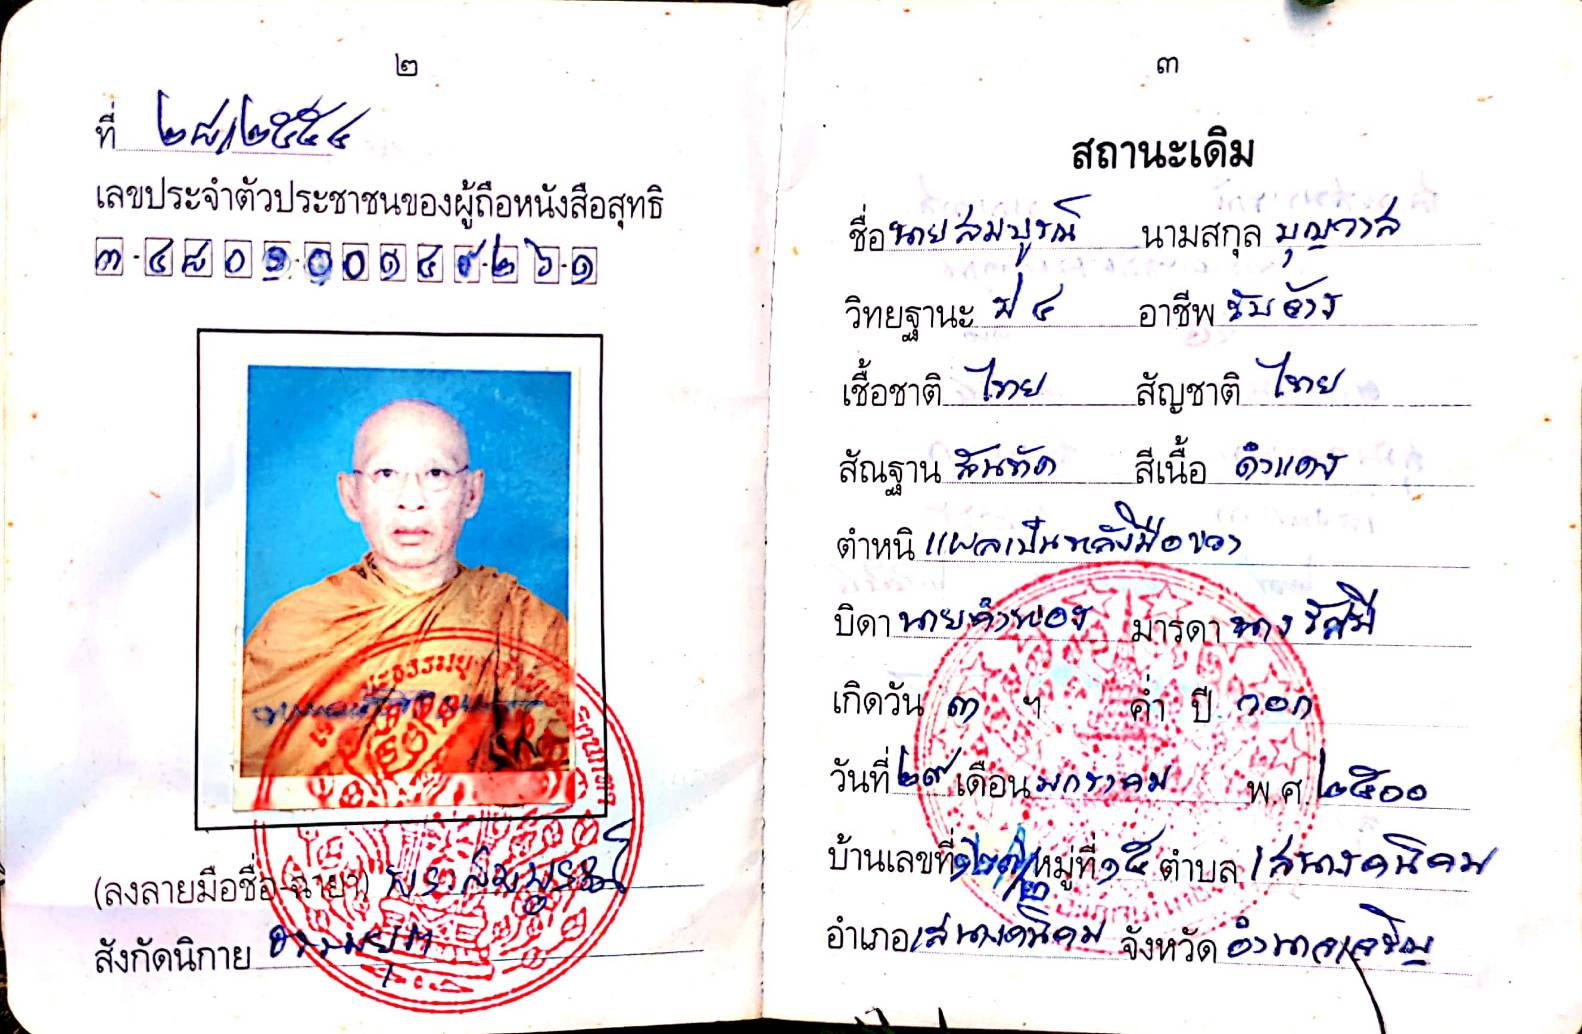 ๒
ที่ ๒๘/๒๕๕๔
เลขประจำตัวประชาชนของผู้ถือหนังสือสุทธิ
(ลงลายมือชื่อ-ฉายา) พระสมบูรณ์
สังกัดนิกาย ธรรมยุต
๓
สถานะเดิม
ชื่อ นายสมบูรณ์ นามสกุล บุญวาส
วิทยฐานะ ป ๔ อาชีพ รับจ้าง
เชื้อชาติ ไทย สัญชาติ ไทย
สัณฐาน สันทัด สีเนื้อ ดำแดง
ตำหนิ แผลเป็นหลังมือขวา
บิดา นายคำพอง มารดา นาง รัศมี
เกิดวัน ๓ ฯ ค่ำ ปี วอก
วันที่ ๒๙ เดือน มกราคม พ.ศ. ๒๕๐๐
บ้านเลขที่ หมู่ที่ ๑๕ ตำบล เสนางคนิคม
อำเภอ เสนางคนิคม จังหวัด อำนาจเจริญ